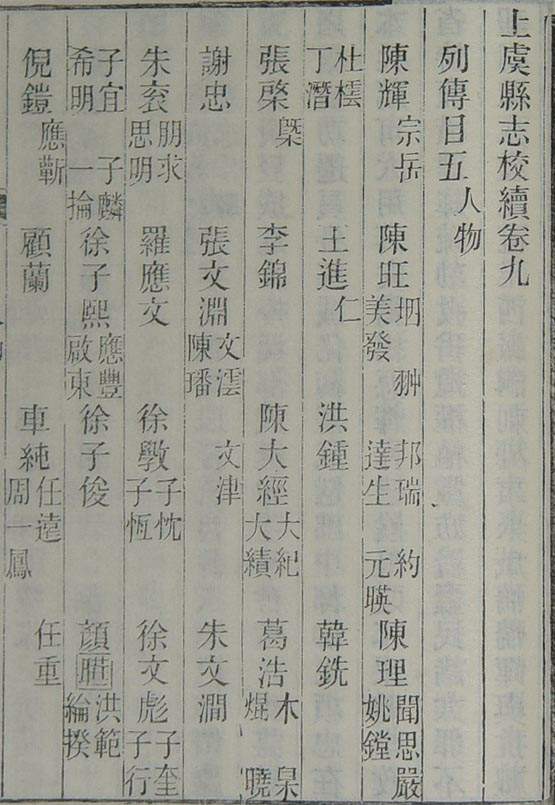 上虞縣志校續卷九
列傳目五 人物
陳輝 宗岳 陳旺 坰 翀 邦瑞 約 美發 達生 元暎 陳理 聞思嚴 姚鏜
杜橒 丁潛 王進 仁 洪鍾 韓銑
張棨 槩 李錦 陳大經 大紀 大績 葛浩 木 杲 焜 曉
謝忠 張文淵 文澐 文津 陳璠 朱文澗
朱衮 朋求 思明 羅應文 徐斅 子忱 子恆 徐文彪 子奎 子行
子宜 子麟 希明 一掄 徐子熙 應豐 啟東 徐子俊 顏曄 洪範 綸 揆
倪鎧 應蘄 顧蘭 車純 任遠 任重 周一鳳